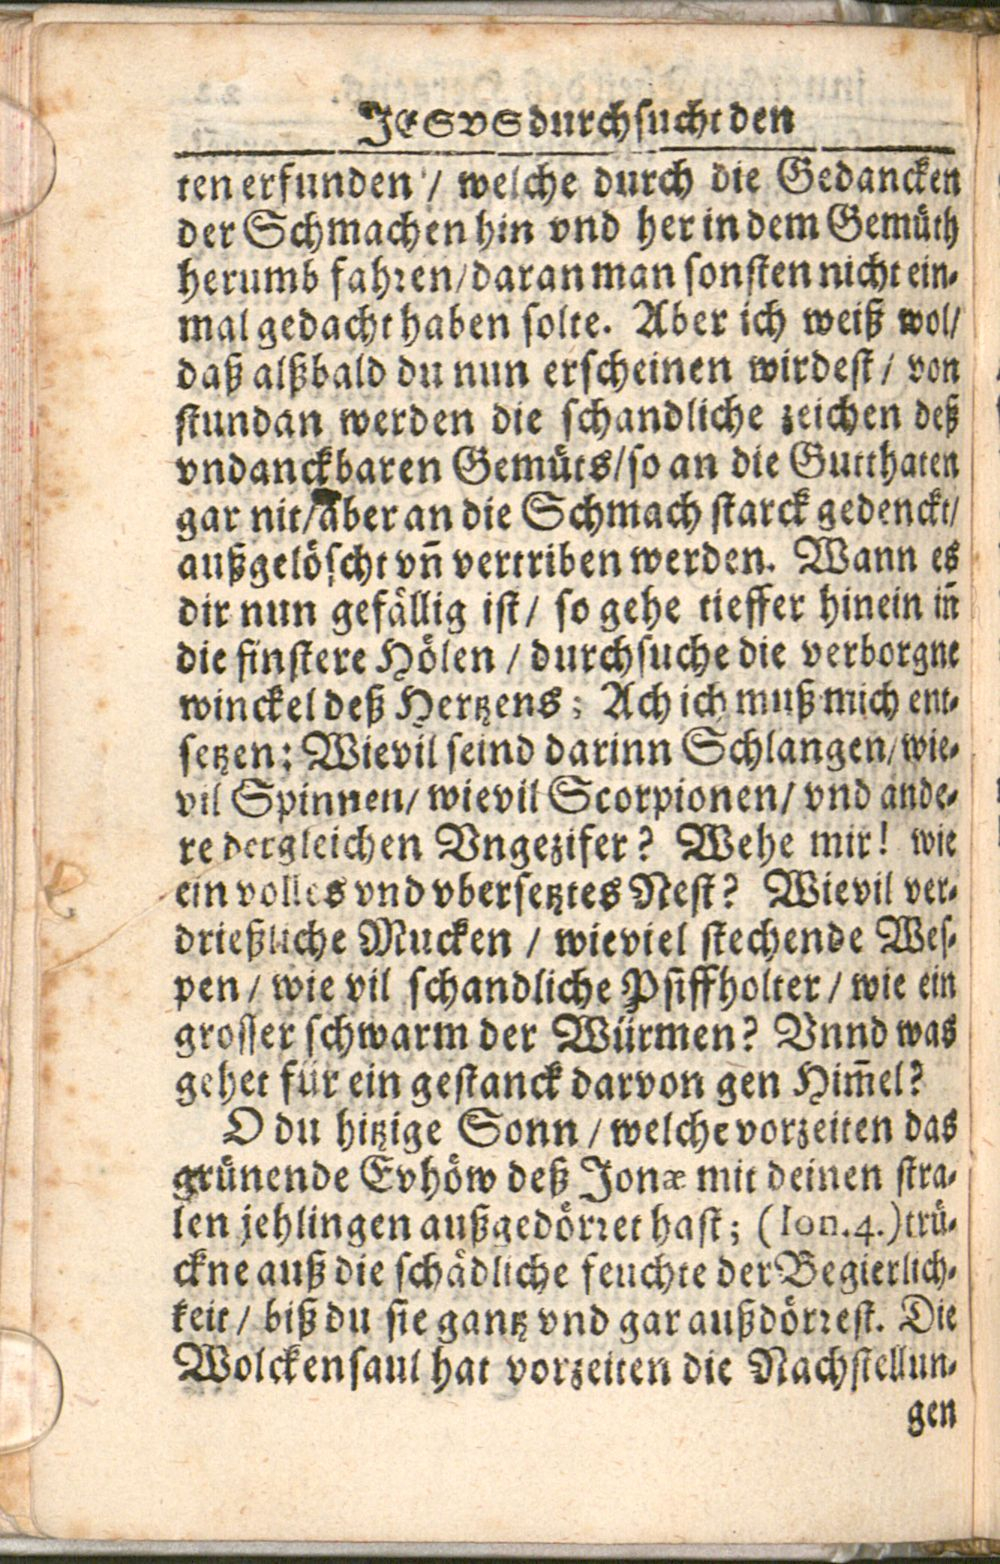 JESVS durchsucht den
ten erfunden / welche durch die Gedancken
der Schmachen hin vnd her in dem Gemüth
herumb fahren / daran man sonsten nicht ein-
mal gedacht haben solte. Aber ich weiß wol /
daß alßbald du nun erscheinen wirdest / von
stundan werden die schandliche zeichen deß
vndanckbaren Gemüts / so an die Gutthaten
gar nit / aber an die Schmach starck gedenckt /
außgelöscht vñ vertriben werden. Wann es
dir nun gefällig ist / so gehe tieffer hinein iñ
die finstere Hölen / durchsuche die verborgne
winckel deß Hertzens; Ach ich muß mich ent-
setzen: Wievil seind darinn Schlangen / wie-
vil Spinnen / wievil Scorpionen / vnd ande-
re dergleichen Vngezifer? Wehe mir! wie
ein volles vnd vbersetztes Nest? Wievil ver-
drießliche Mucken / wieviel stechende Wes-
pen / wie vil schandliche Psiffholter / wie ein
grosser schwarm der Würmen? Vnnd was
gehet für ein gestanck darvon gen Him̃el?
O du hitzige Sonn / welche vorzeiten das
grünende Evhöw deß Jonæ mit deinen stra-
len jehlingen außgedörret hast; (Ion. 4.) trü-
ckne auß die schädliche feuchte der Begierlich-
keit / biß du sie gantz vnd gar außdörrest. Die
Wolckensaul hat vorzeiten die Nachstellun-
gen